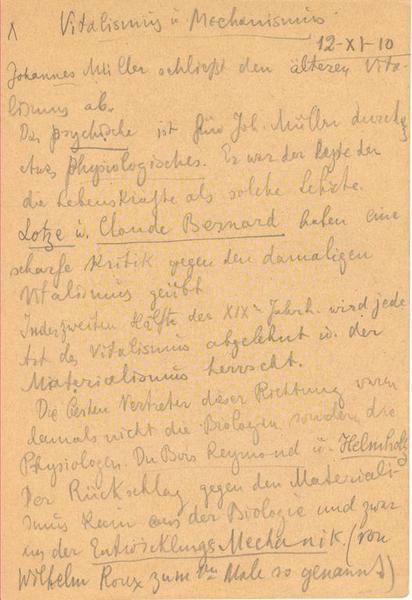 Vitalismus u Mechanismus
12-XI-10
Johannes Müller schließt den älteren Vita-
lismus ab.
Das psychische ist für Joh. Müller durchaus
etwas physiologisches. Er war der letzte der
die Lebenskräfte als solche lehrte.
Lotze u. Claude Bernard haben eine
scharfe Kritik gegen den damaligen
Vitalismus geübt
In der zweiten Hälfte des XIXn Jahrh. wird jede
Art des Vitalismus abgelehnt u. der
Materialismus herrscht.
Die besten Vertreter dieser Richtung waren
damals nicht die Biologen sondern die
Physiologen. Du Bois Reymond u. Helmholtz
Der Rückschlag gegen den Materiali-
smus kam aus der Biologie und zwar
in der Entwicklungs Mechanik. (von
Wilhelm Roux zum Male so genannt)